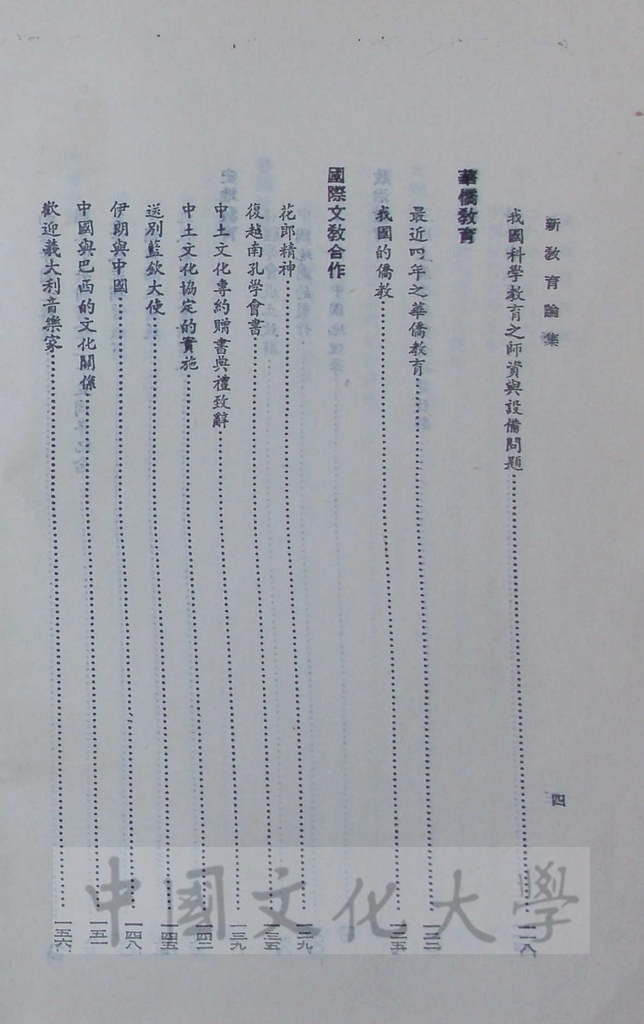 新教育論集
四
我國科學教育之師資與設備問題……一一八
華僑教育
最近四年之華僑教育……一二二
我國的僑教……一二五
國際文教合作
花郎精神……一二九
復越南孔學會書……一三五
中土文化專約贈書典禮致辭……一三九
中土文化協定的實施……一四二
送別藍欽大使……一四五
伊朗與中國……一四八
中國與巴西的文化關係……一五一
歡迎義大利音樂家……一五六
中國文化大學